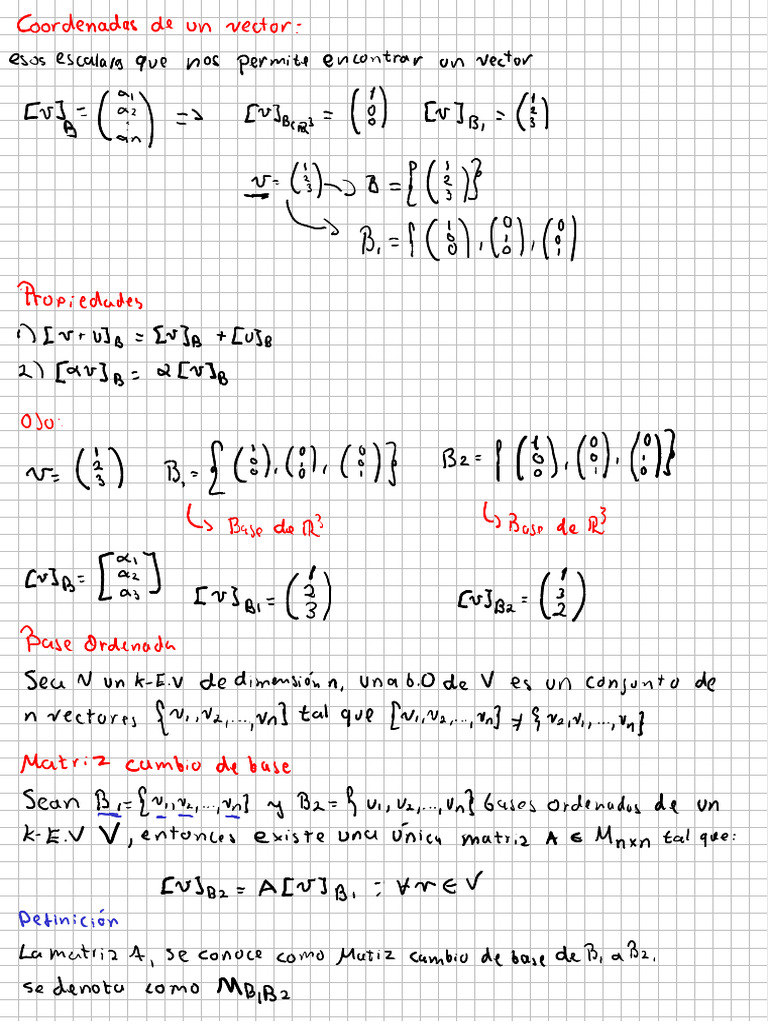 Coordenadas de un vector:
esos escalars que nos permite encontrar un vector
[v]_B = (α1 α2 ⋮ αn) => [v]_{B⊂ℝ³} = (1 0 0) [v]_{B1} = (1 2 3)
v = (1 2 3) → B = {(1 2 3)}
B1 = {(1 0 0), (0 1 0), (0 0 1)
Propiedades
1) [v + u]_B = [v]_B + [u]_B
2) [αv]_B = α[v]_B
Ojo:
v = (1 2 3) B1 = {(1 0 0), (0 1 0), (0 0 1)} B2 = {(1 0 0), (0 0 1), (0 1 0)}
↳ Base de ℝ³ ↳ Base de ℝ³
[v]_B = [α1 α2 α3] [v]_{B1} = (1 2 3) [v]_{B2} = (1 3 2)
Base Ordenada
Sea V un k-E.V de dimensión n, una b.O de V es un conjunto de
n vectores {v1, v2, ..., vn} tal que {v1, v2, ..., vn} ≠ {v2, v1, ..., vn}
Matriz cambio de base
Sean B1 = {v1, v2, ..., vn} y B2 = {u1, u2, ..., un} bases ordenados de un
k-E.V V, entonces existe una única matriz A ∈ M_{nxn} tal que:
[v]_{B2} = A[v]_{B1} : ∀v ∈ V
Definición
La matriz A, se conoce como Matiz cambio de base de B1 a B2.
se denota como M_{B1B2}